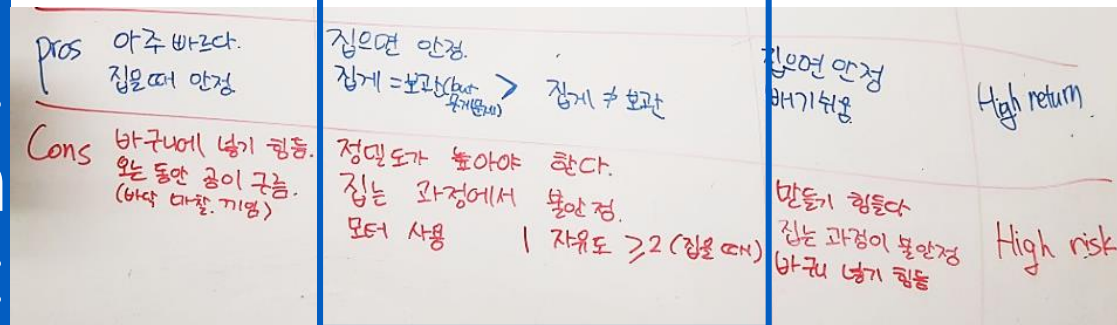 pros 아주 빠르다.
집을 때 안정
집으면 안정.
집게 = 보관(but 무게문제) > 집게 ≠ 보관
집으면 안정
빼기쉬움
High return
Cons 바구니에 넣기 힘듦.
오는 동안 공이 구름.
(바닥 마찰. 기임)
정밀도가 높아야 한다.
집는 과정에서 불안정.
모터 사용 | 자유도 ≥2 (집을 때)
만들기 힘들다
집는 과정이 불안정
바구니 넣기 힘듦
High risk